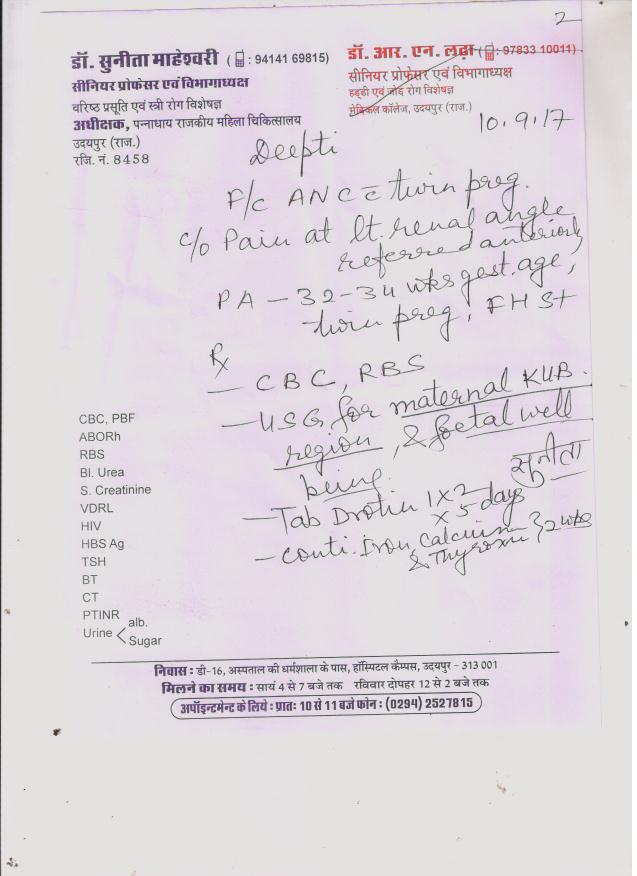 2
डॉ. सुनीता माहेश्वरी ( : 94141 69815)
सीनियर प्रोफेसर एवं विभागाध्यक्ष
वरिष्ठ प्रसूति एवं स्त्री रोग विशेषज्ञ
अधीक्षक, पन्नाधाय राजकीय महिला चिकित्सालय
उदयपुर (राज.)
रजि. नं. 8458
डॉ. आर. एन. लढ़ा ( : 97833 10011)
सीनियर प्रोफेसर एवं विभागाध्यक्ष
हड्डी एवं जोड़ रोग विशेषज्ञ
मेडिकल कॉलेज, उदयपुर (राज.)
10.9.17
Deepti
F/c ANC c̄ twin preg.
c/o Pain at lt. renal angle
referred anteriorly
PA - 32-34 wks gest. age,
twin preg, FHS+
Rx
- CBC, RBS
- USG for maternal KUB
region, & foetal well
being.
सुनीता
- Tab Drotin 1x2
x 5 days
- conti. Iron, Calcium } 2 wks
& Thyroxin
CBC, PBF
ABORh
RBS
Bl. Urea
S. Creatinine
VDRL
HIV
HBS Ag
TSH
BT
CT
PTINR
Urine < alb.
Sugar
निवास : डी-16, अस्पताल की धर्मशाला के पास, हॉस्पिटल कैम्पस, उदयपुर - 313 001
मिलने का समय : सायं 4 से 7 बजे तक रविवार दोपहर 12 से 2 बजे तक
अपॉइन्टमेन्ट के लिये : प्रातः 10 से 11 बजे फोन : (0294) 2527815